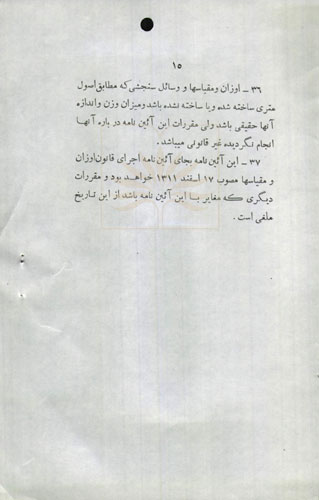 ۱۵
۳۶ ـ اوزان ومقیاسها و وسائل سنجشی که مطابق اصول
متری ساخته شده ویا ساخته نشده باشد ومیزان وزن واندازه
آنها حقیقی باشد ولی مقررات این آئین نامه در باره آنها
انجام نگردیده غیر قانونی میباشد.
۳۷ ـ این آئین نامه بجای آئین نامه اجرای قانون اوزان
و مقیاسها مصوب ۱۷ اسفند ۱۳۱۱ خواهد بود و مقررات
دیگری که مغایر با این آئین نامه باشد از این تاریخ
ملغی است.